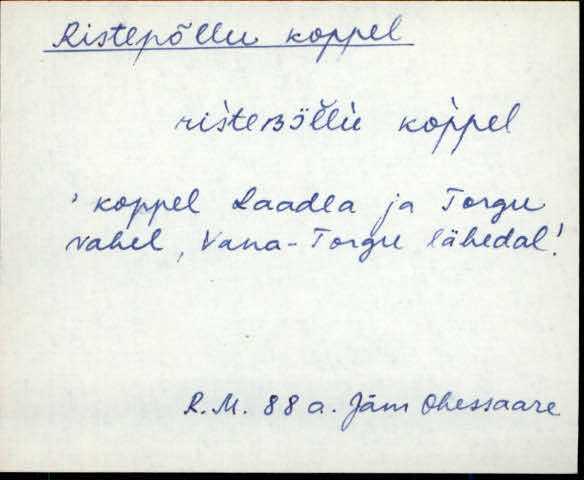 Ristepõllu koppel
risteʙö̆l̆lu koppel
' koppel Laadla ja Torgu
vahel, Vana-Torgu lähedal.'
R.M. 88 a. Jäm Ohessaare